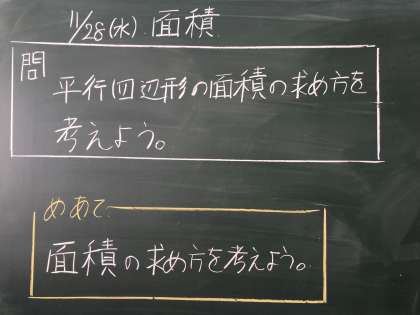 11/28(水) 面積
問
平行四辺形の面積の求め方を
考えよう。
めあて
面積の求め方を考えよう。